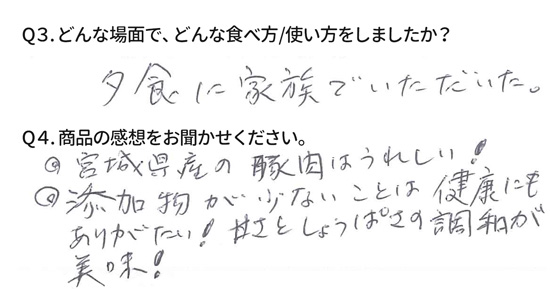 Q3.どんな場面で、どんな食べ方/使い方をしましたか？
夕食に家族でいただいた。
Q4.商品の感想をお聞かせください。
◎宮城県産の豚肉はうれしい！
◎添加物が少ないことは健康にも
ありがたい！甘さとしょうぱさの調和が
美味！